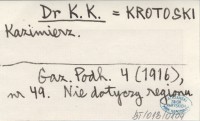 Dr K.K. = KROTOSKI
Kazimierz.
Gaz. Podh. 4 (1916),
nr 49. Nie dotyczy regionu